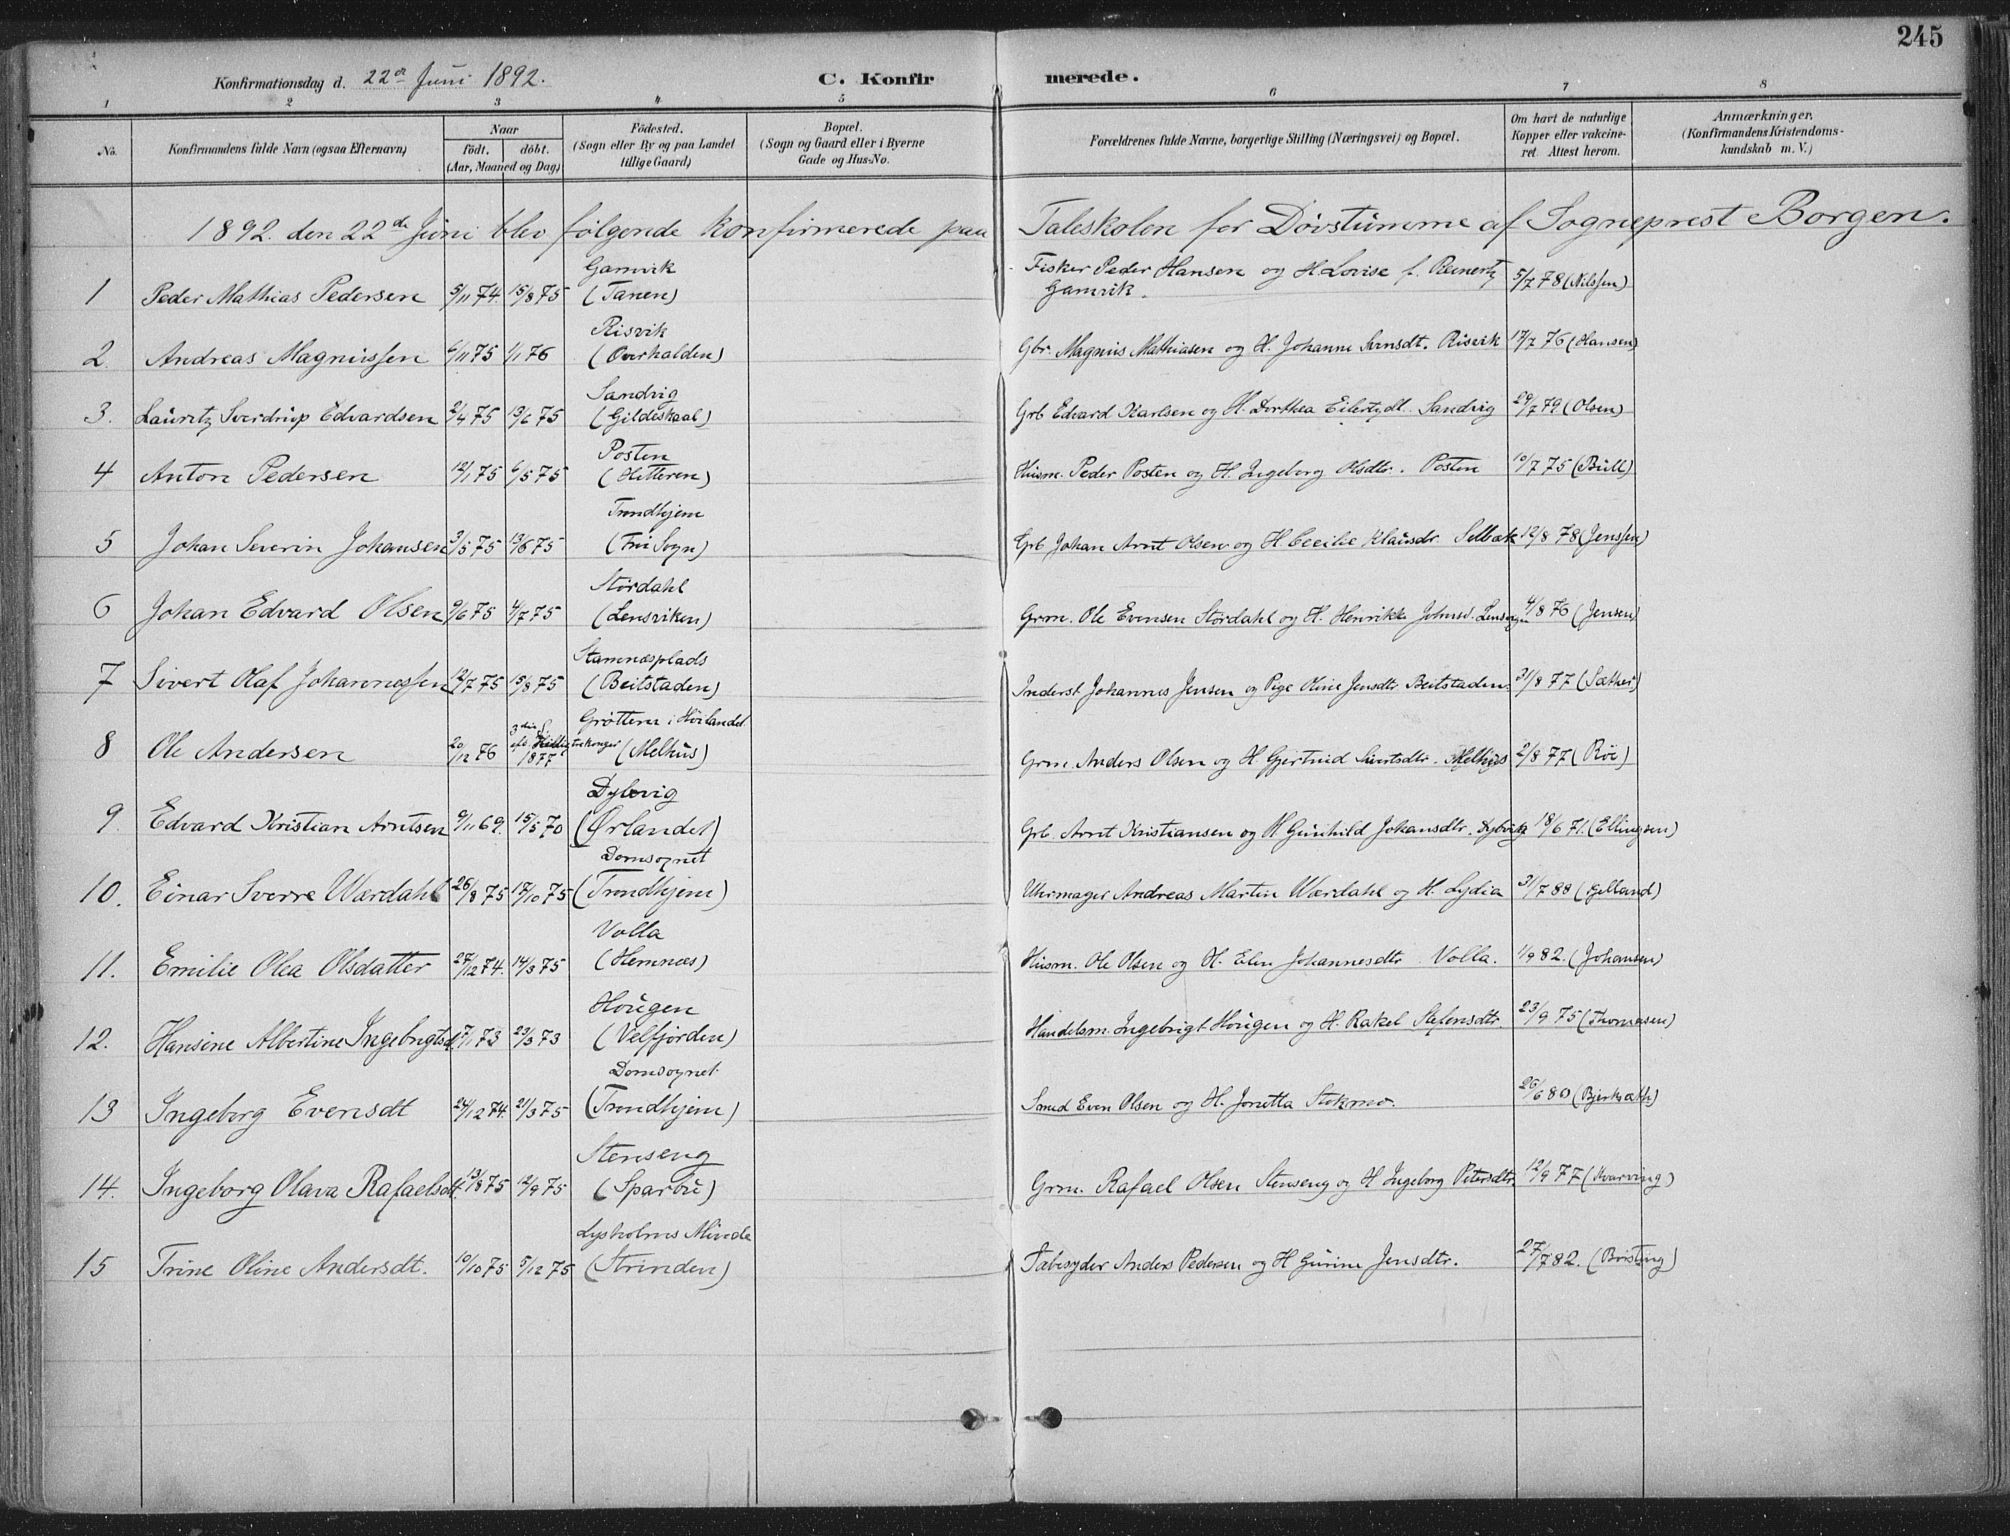 245
Konfirmationsdag d. 22de Juni 1892. C. Konfirmerede.
1 2 3 4 5 6 7 8
No. Konfirmandens fulde Navn (ogsaa Efternavn) Naar født. døbt. (Aar, Maaned og Dag) Fødested. (Sogn eller By og paa Landet tillige Gaard) Bopæl. (Sogn og Gaard eller i Byerne Gade og Hus-No. Forældrenes fulde Navne, borgerlige Stilling (Næringsvei) og Bopæl. Om havt de naturlige Kopper eller vaccineret. Attest herom. Anmærkninger. (Konfirmandens Kristendomskundskab m. V.)
1892 den 22de Juni blev følgende konfirmerede paa Taleskolen for Døvstumme af Sogneprest Borgen.
1 Peder Mathias Pedersen 5/11 74. 15/8 75 Gamvik (Tanen) Fisker Peder Hansen og H. Lovise f. Reinertz Gamvik. 5/7 78 (Nilssen)
2 Andreas Magnussen 6/11 75 1/1 76 Risvik (Overhalden) Gbr. Magnus Mathiasen og H. Johanne Risvik 17/7 76 (Hansen)
3. Lauritz Sverdrup Edvardsen 2/4 75 13/6 75 Sandvig (Gildeskaal) Grb Edvard Karlsen og H. Dorthea Sandvig 29/7 79 (Olsen)
4 Anton Pedersen 12/1 75 6/5 75 Posten (Hitteren) Husm. Peder Posten og H. Ingeborg Olsdtr. Posten 10/7 75 (Bull)
5 Johan Severin Johansen 3/5 75 13/6 75 Trondhjem (Frue Sogn) Grb Johan Arnt Olsen og H. Cecilie Klausdr. Selbæk 12/8 78 (Jenssen)
6 Johan Edvard Olsen 9/6 75 4/7 75 Størdahl (Lensviken) Grm. Ole Evensen Størdahl og H. Henrikke 4/8 76 (Jensen)
7 Sivert Olaf Johannessen 12/7 75 15/8 75 Stamnæsplads (Beitstaden) Inderst. Johannes Jensen og Pige Oline Jensdtr Beitstaden. 31/8 77 (Sæther)
8 Ole Andersen 20/12 76 3die S. eft. Helligtrekonger 1877 Grøttem i Hølandet (Melhus) Grm. Anders Olsen og H. Gjertrud Sivertsdtr. Melhus 2/8 77 (Røe)
9. Edvard Kristian Arntsen 9/11 69. 15/5 70 Dybvig (Ørlandet) Grb. Arnt Kristiansen og H Gunhild Johansdtr. Dybvig 18/6 71. (Ellingsen)
10. Einar Sverre Wærdahl 26/8 75 17/10 75 Domsognet (Trondhjem) Uhrmager Andreas Martin Wærdahl og H. Lydia 31/7 88 (Gelland)
11. Emilie Olea Olsdatter 27/12 74. 14/3 75 Volla (Hemnæs) Husm. Ole Olsen og H. Elen Johannesdtr. Volla. 1/9 82. (Johansen)
12. Hansine Albertine Ingebrigtsd. 7/1 73 23/3 73 Hougen (Velfjorden) Handelsm. Ingebrigt Hougen og H. Rakel Stefensdtr. 23/9 75 (Thomasen)
13 Ingeborg Evensdt 24/12 74 21/3 75 Domsognet (Trondhjem) Smed Even Olsen og H. Jonetta Stokmo. 26/6 80 (Bjerksæth)
14. Ingeborg Olava Rafaelsdt. 13/8 75 12/9 75 Stenseng (Sparbu) Grm. Rafael Olsen Stenseng og H Ingeborg Petersdtr. 12/9 77 (Kvarving)
15 Trine Oline Andersdt. 10/10 75 5/12 75 Lysholms Minde (Strinden) Sæbesyder Anders Pedersen og H Gurine Jensdtr. 27/7 82.